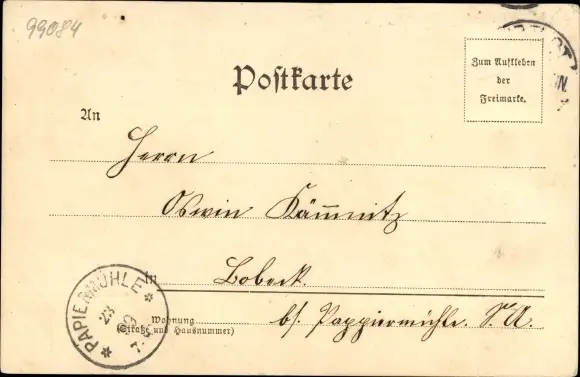 99084
Postkarte
Zum Aufkleben
der
Freimarke.
An
Herrn
Oswin Kämnitz
in Lobeck.
Wohnung
(Straße und Hausnummer)
bs. Pappiermühle. S. A.
PAPIERMÜHLE
23
99